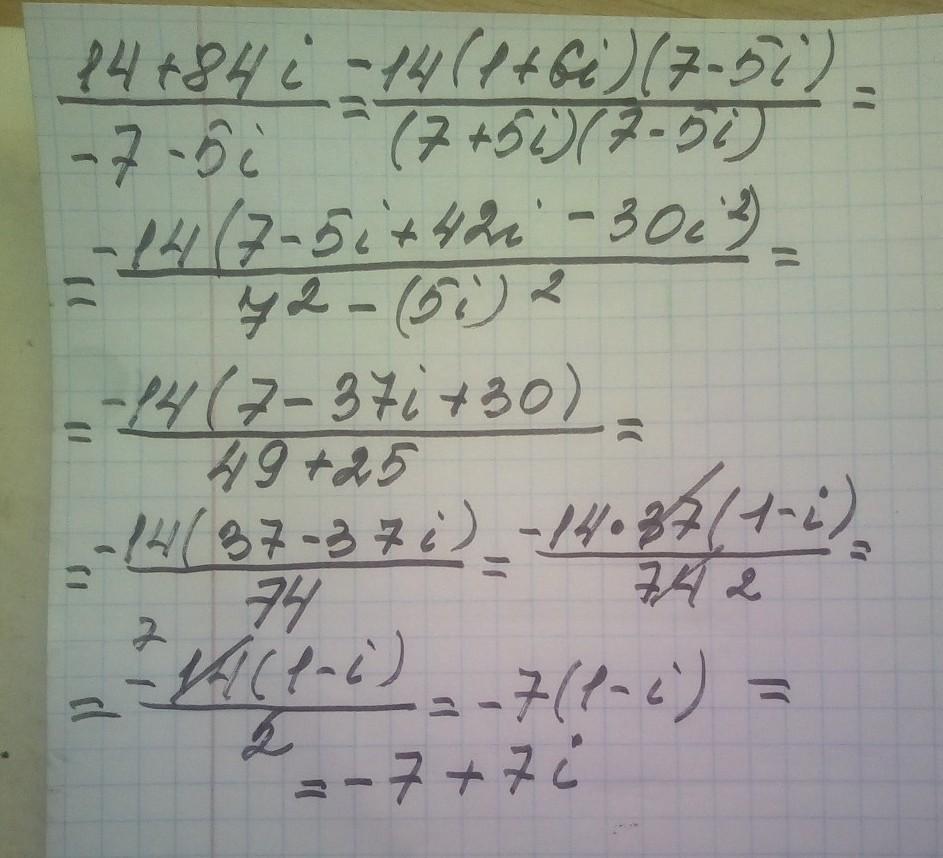 14+84i / -7-5i = -14(1+6i)(7-5i) / (7+5i)(7-5i) =
= -14(7-5i+42i-30i²) / 7²-(5i)² =
= -14(7-37i+30) / 49+25 =
= -14(37-37i) / 74 = -14·37(1-i) / 74 2 =
= 7 -14(1-i) / 2 = -7(1-i) =
= -7+7i